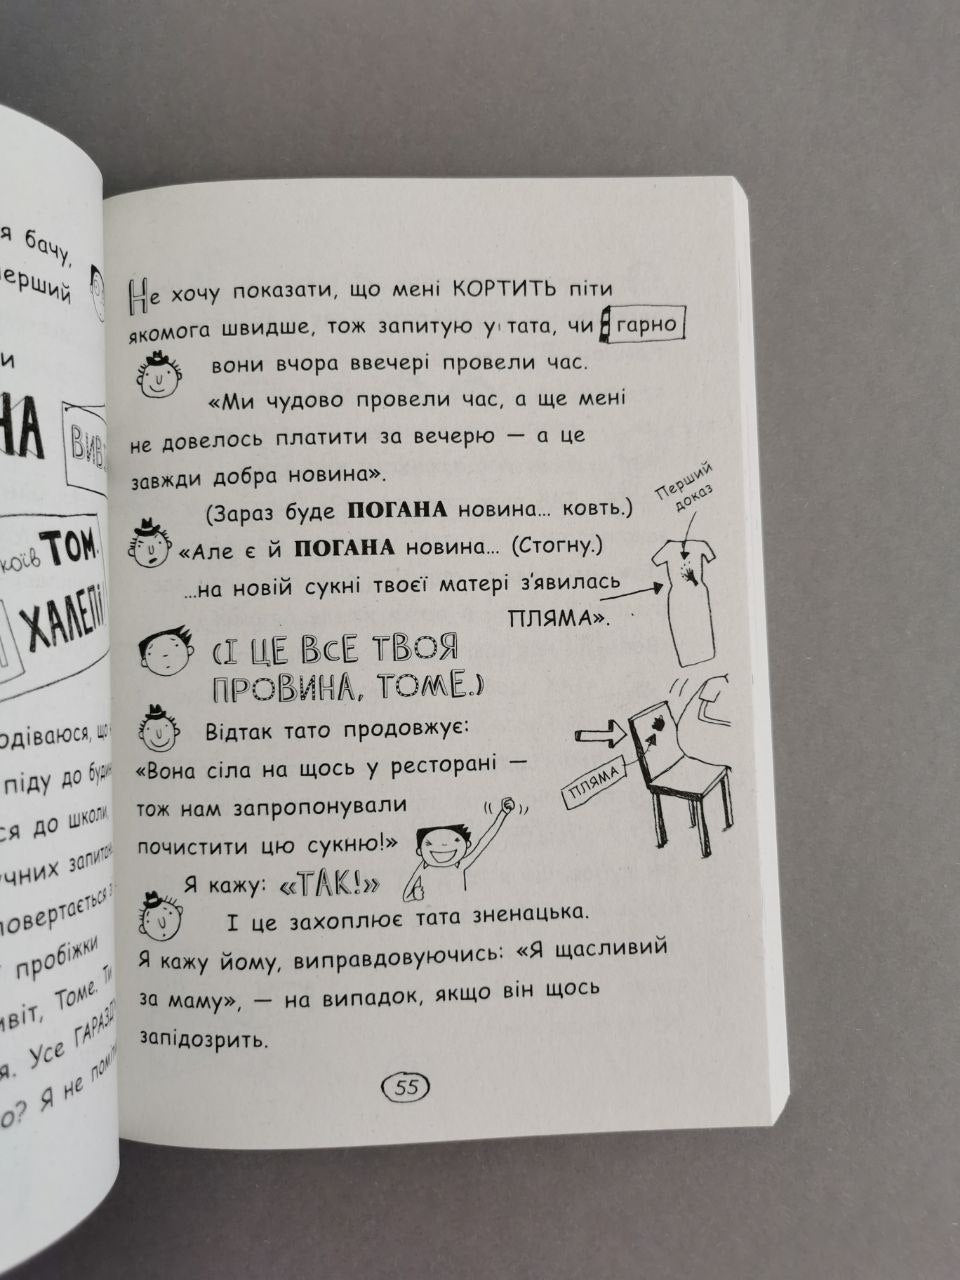 я бачу,
перший
и
НА
ТОМ.
ХАЛЕПІ
одіваюся, що
піду до
ся до школи,
повертається з
пробіжки
Томе. Ти
я. Усе ГАРАЗД
о? Я не
Не хочу показати, що мені КОРТИТЬ піти
якомога швидше, тож запитую у тата, чи гарно
вони вчора ввечері провели час.
«Ми чудово провели час, а ще мені
не довелось платити за вечерю — а це
завжди добра новина».
Перший
доказ
(Зараз буде ПОГАНА новина... ковть.)
«Але є й ПОГАНА новина... (Стогну.)
...на новій сукні твоєї матері з'явилась
ПЛЯМА».
(І ЦЕ ВСЕ ТВОЯ
ПРОВИНА, ТОМЕ.)
Відтак тато продовжує:
«Вона сіла на щось у ресторані —
ПЛЯМА
тож нам запропонували
почистити цю сукню!»
Я кажу: «ТАК!»
І це захоплює тата зненацька.
Я кажу йому, виправдовуючись: «Я щасливий
за маму», — на випадок, якщо він щось
запідозрить.
55